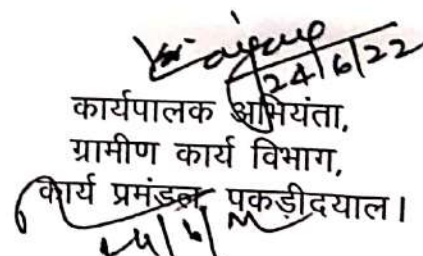 24/6/22
कार्यपालक अभियंता,
ग्रामीण कार्य विभाग,
कार्य प्रमंडल, पकड़ीदयाल।